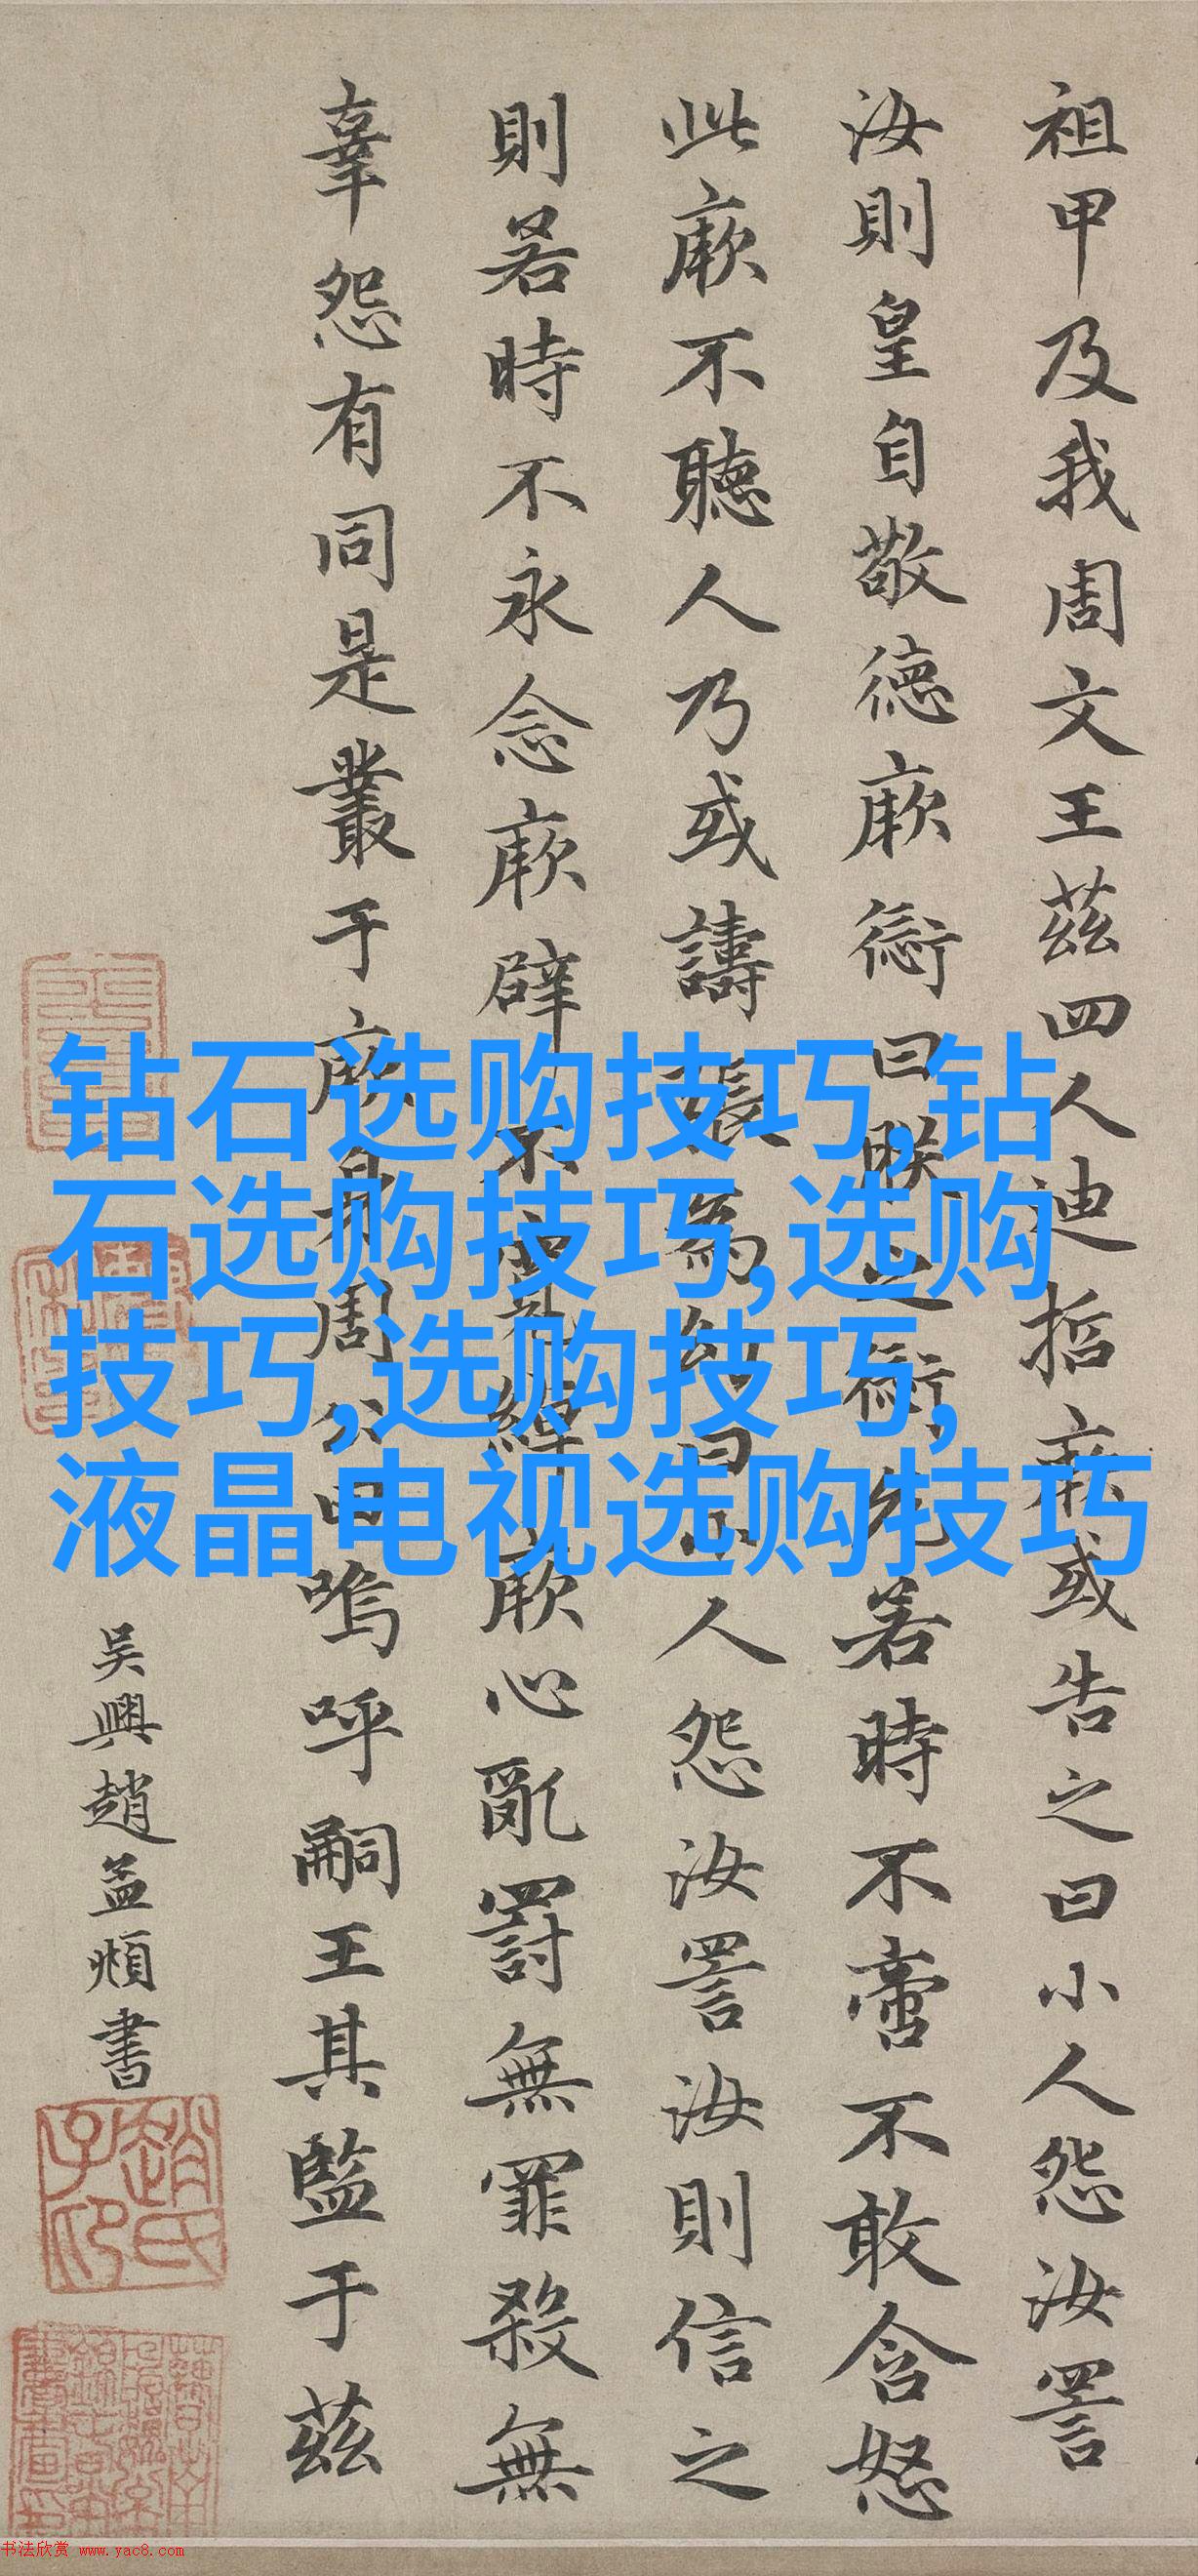 祖甲及我周文王茲四人迪哲厥或告之曰小人怨汝詈
汝則皇自敬德厥愆曰朕之愆允若時不啻不敢含怒
此厥不聽人乃或譸張為幻曰小人怨汝詈汝則信之
則若時不永念厥辟不寬綽厥心亂罰無罪殺無
辜怨有同是叢于厥身周公曰嗚呼嗣王其監于茲
吴興趙孟頫書
趙氏子昂
钻石选购技巧,钻
石选购技巧,选购
技巧,选购技巧,
液晶电视选购技巧
书法欣赏 www.yac8.com